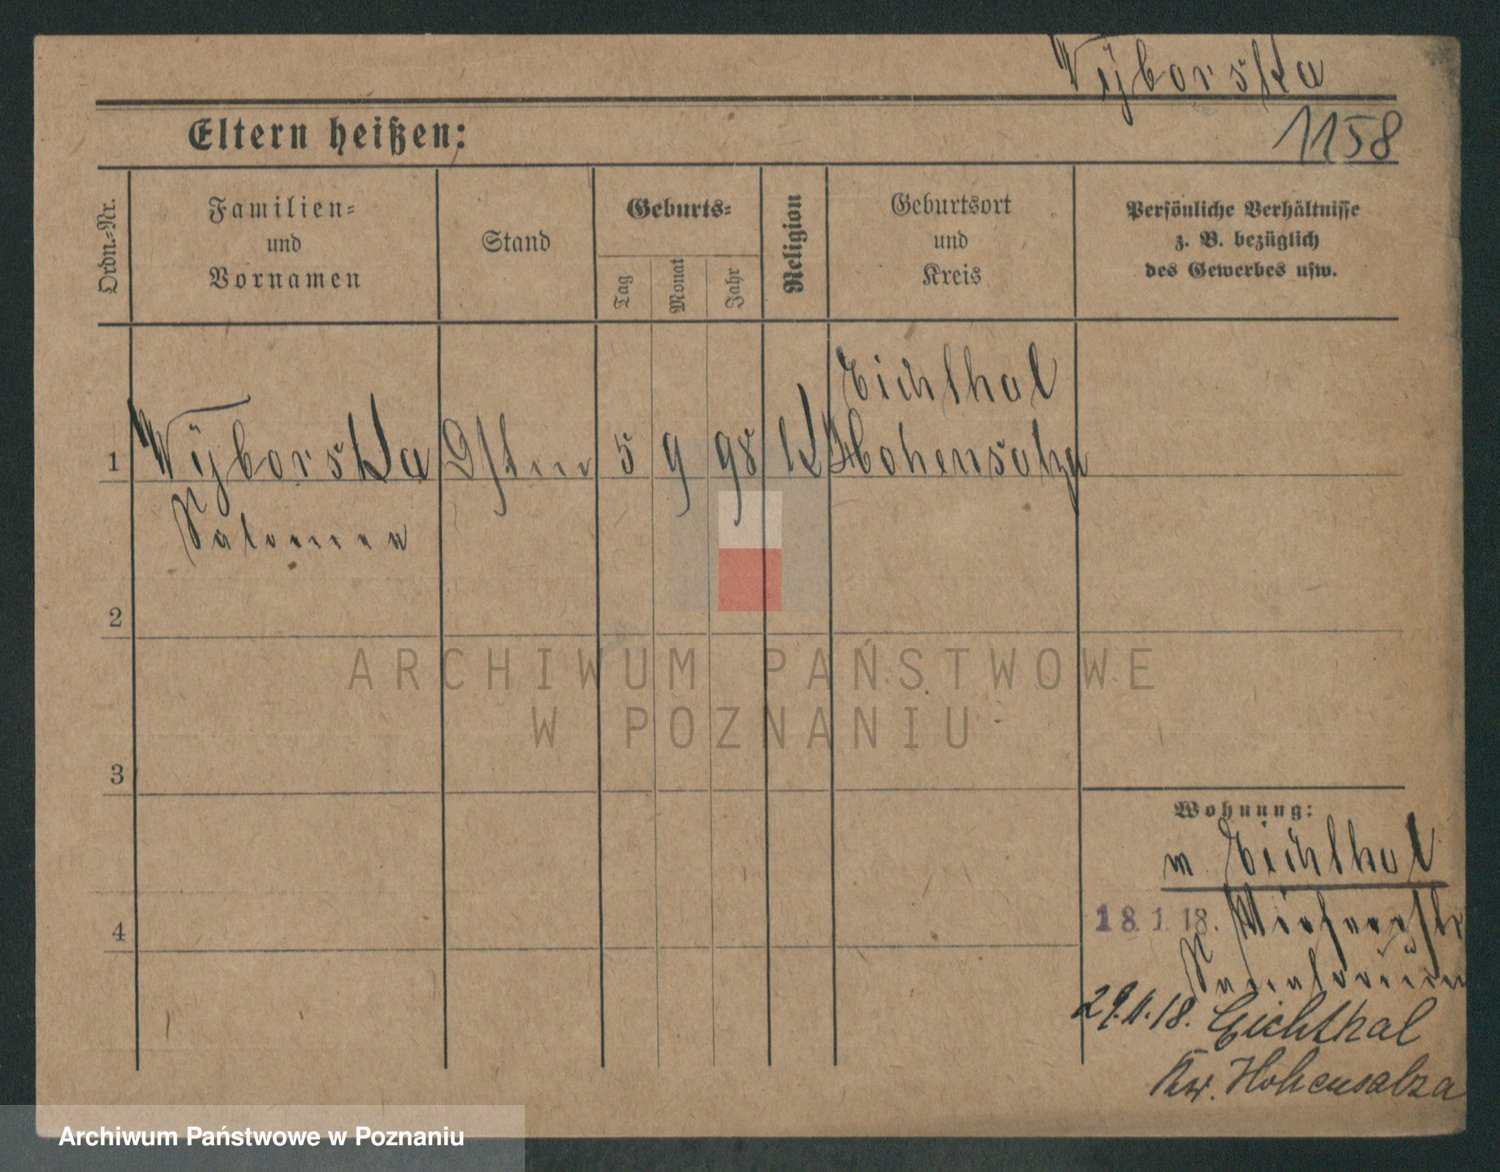 Wÿborska
Eltern heißen:
1158
Ordn.-Nr.
Familien-
und
Vornamen
Stand
Geburts-
Tag
Monat
Jahr
Religion
Geburtsort
und
Kreis
Persönliche Verhältnisse
z. B. bezüglich
des Gewerbes usw.
Eichthal
1 Wÿborska 5 9 98 K Hohensalza
Salomea
2
ARCHIWUM PAŃSTWOWE
W POZNANIU
3
Wohnung:
Eichthal
4
18.1.18.
Sanatorium
29.11.18. Eichthal
Kr. Hohensalza
Archiwum Państwowe w Poznaniu